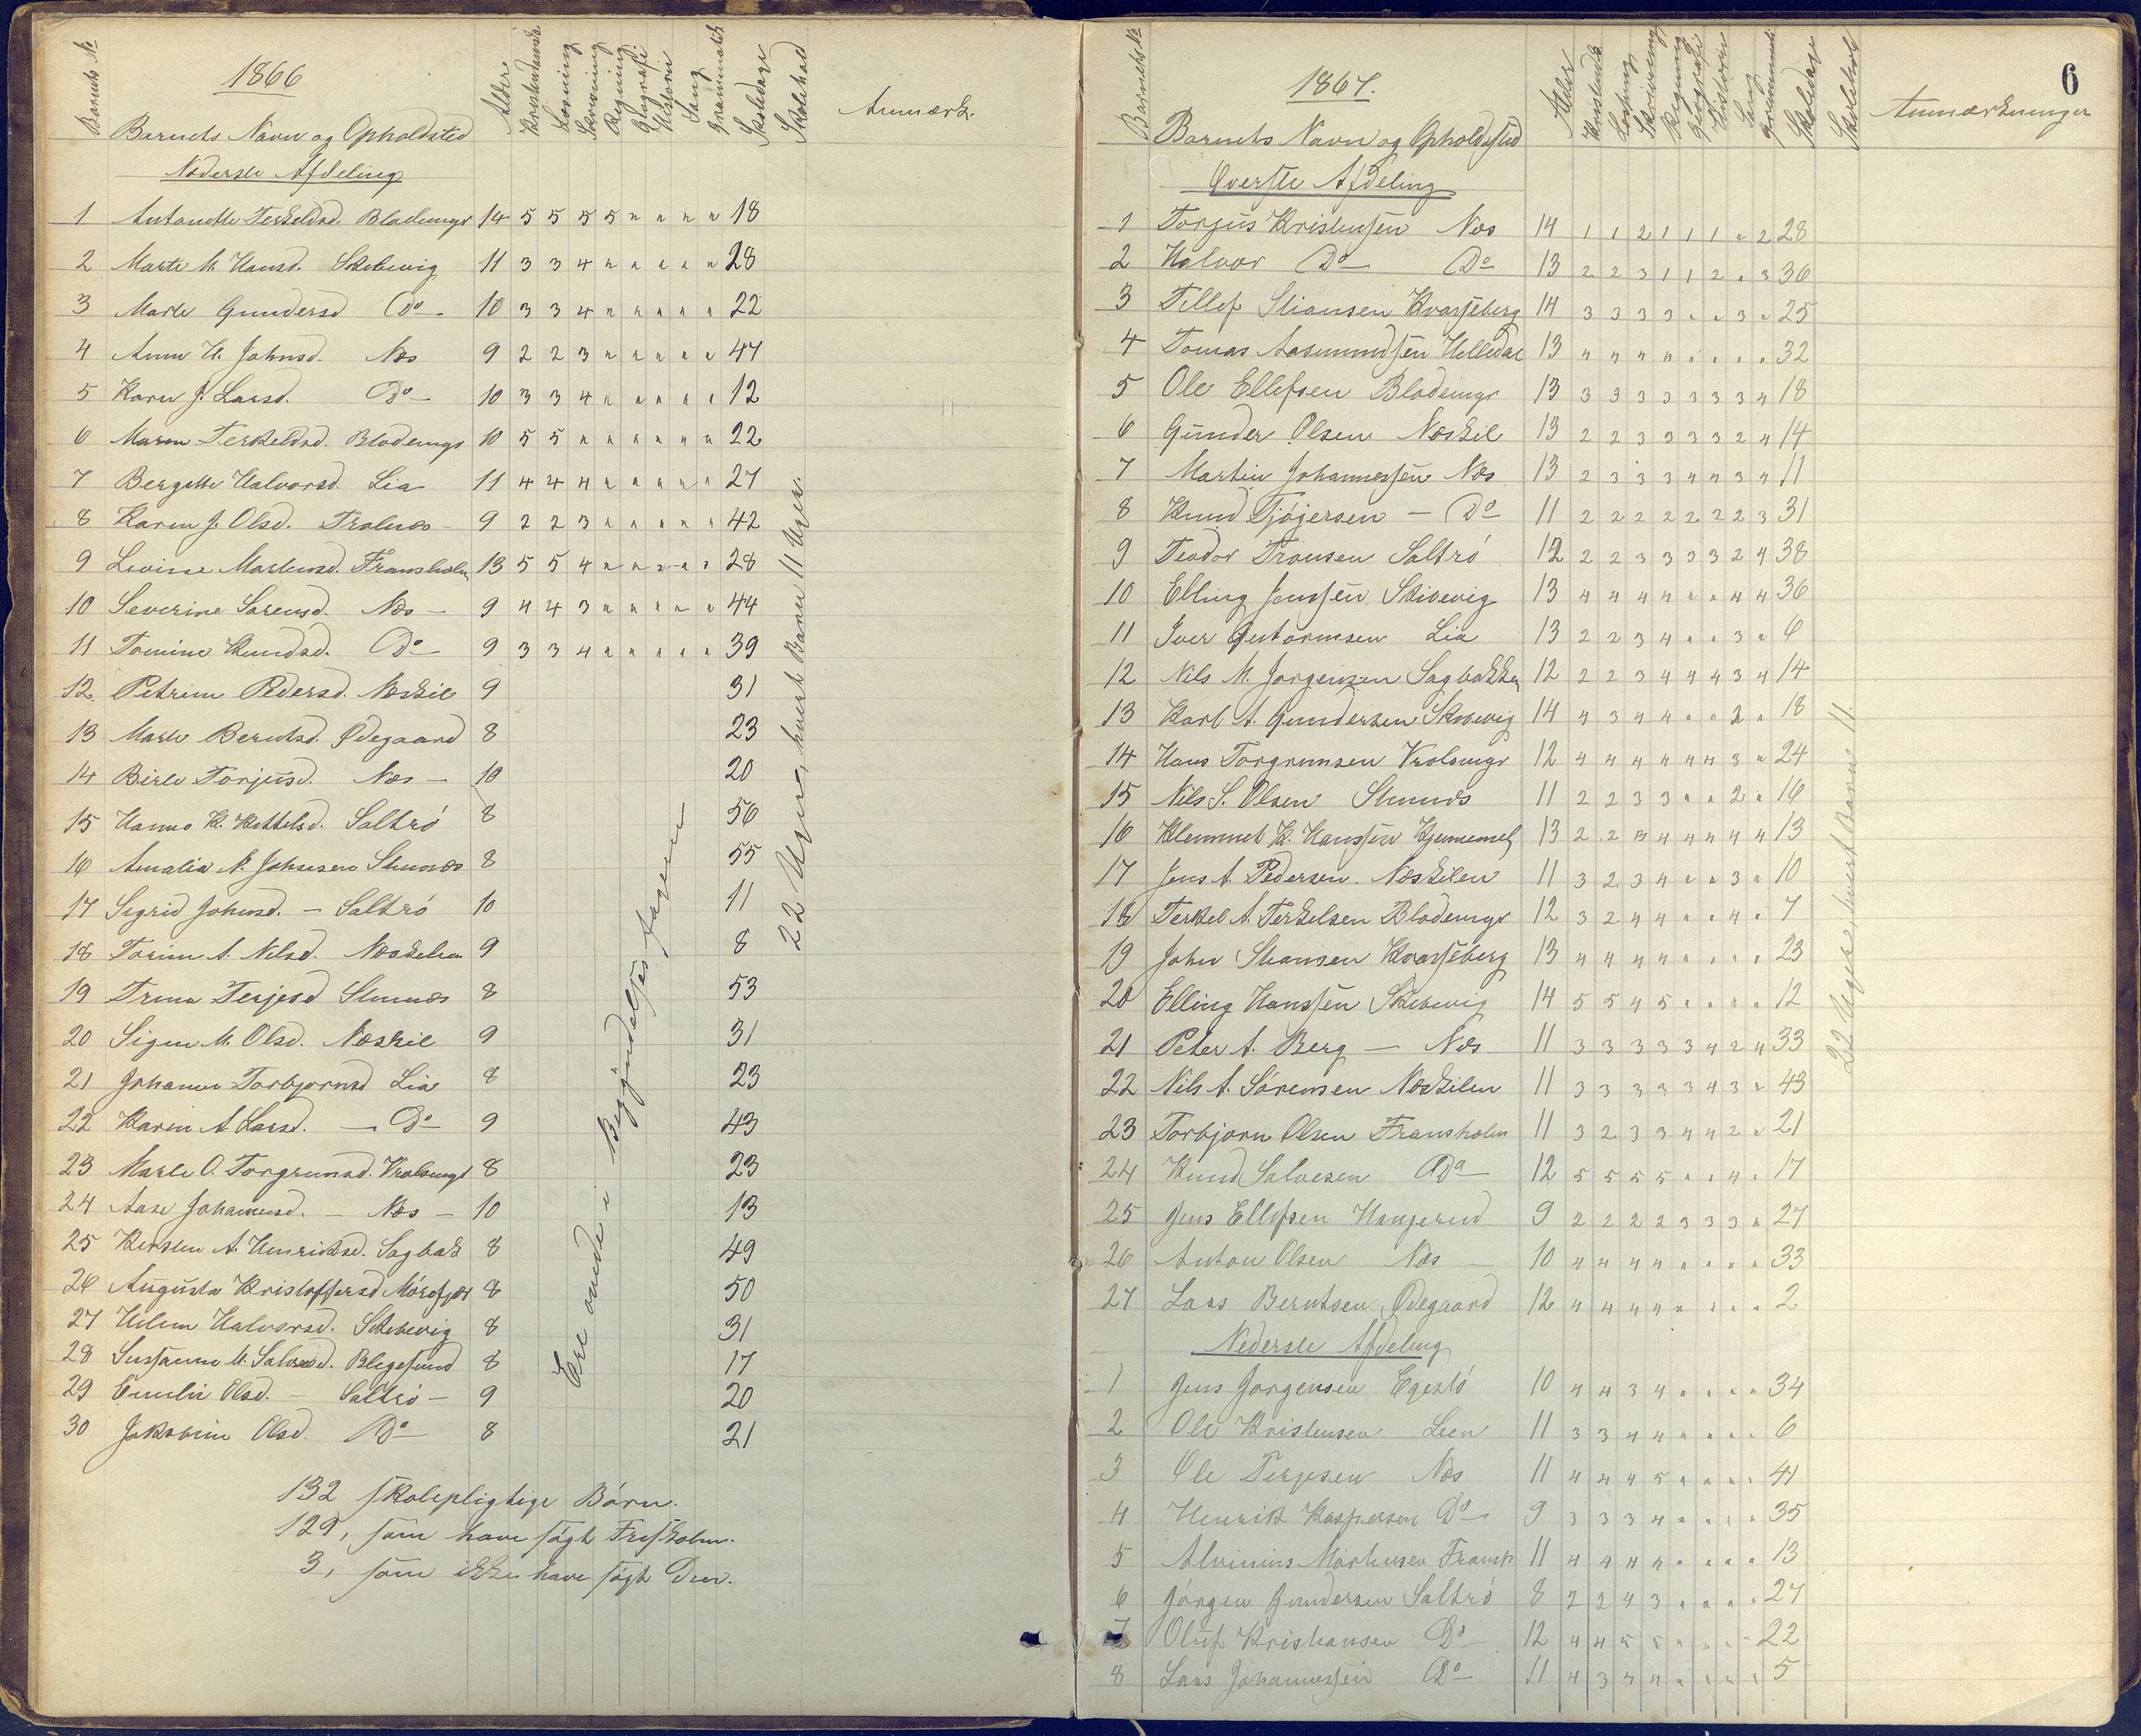 1866
Barnets No
Barnets Navn og Opholdsted
Alder
Kristendomsk
Læsning
Skrivning
Regning
Geografi
Historie
Sang
Grammatik
Skoledage
Skolehold
Anmærk.
Nederste Afdeling
1 Antonette Terkeldsd. Blademyr 14 5 5 5 5 " " " " 18
2 Marte M. Hansd. Skibevig 11 3 3 4 " " " " " 28
3 Marte Gundersd Do 10 3 3 4 " " " " " 22
4 Anne H. Johnsd. Næs 9 2 2 3 " " " " " 47
5 Karen J. Larsd. Do 10 3 3 4 " " " " " 12
6 Maren Terkeldsd. Blodemyr 10 5 5 " " " " " " 22
7 Bergitte Halvorsd. Lia 11 4 4 4 " " " " " 27
8 Karen J. Olsd. Tralnæs 9 2 2 3 " " " " " 42
9 Lovine Martensd. Fransholm 13 5 5 4 " " " " " 28
10 Severine Sørensd. Næs 9 4 4 3 " " " " " 44
11 Tomine Knudsd. Do 9 3 3 4 " " " " " 39
12 Petrine Pedersd. Næskil 9 31
13 Marte Berntsd. Ødegaard 8 23
14 Birte Torjusd. Næs 10 20
15 Hanna K. Kittelsd. Saltrö 8 56
16 Amalia N. Johnsen Stumnæs 8 55
17 Sigrid Johnsd. Saltrö 10 11
18 Torine A. Nilsd. Næskilen 9 8
19 Trine Terjesd Stumnæs 8 53
20 Signe M. Olsd. Næskil 9 31
21 Johanne Torbjørnsd Lia 8 23
22 Karen A. Larsd. Do 9 43
23 Marte O. Torgrimsd. Kvolsmyr 8 23
24 Aase Johannesd. Næs 10 13
25 Kirsten A. Henriksd. Sagbak 8 49
26 Augusta Kristoffersd Mórefjær 8 50
27 Helene Halvorsd. Skibevig 8 31
28 Susanne M. Salvesd. Blegesund 8 17
29 Emilie Olsd. Saltrö 9 20
30 Jakobine Olsd. Do 8 21
Ere ande i Begyndelsesfagene
22 Uger, hvert Barn 11 Uger.
132 skolepligtige Börn.
129, som have søgt Fastskolen.
3, som ikke have søgt Den.
6
1867.
Barnets No
Barnets Navn og Opholdssted
Alder
Kristendk
Læsning
Skrivning
Regning
Geografi
Historie
Sang
Grammatik
Skoledage
Skolehold
Anmærkninger
Øverste Afdeling
1 Torjus Kristensen Næs 14 1 1 2 1 1 1 " 2 28
2 Halvor Do Do 13 2 2 3 1 1 2 " 3 36
3 Tellef Stiansen Kvasseberg 14 3 3 3 3 " " 3 " 25
4 Tomas Aasmundsen Helledal 13 4 4 4 4 " " " " 32
5 Ole Ellefsen Blodemyr 13 3 3 3 3 3 3 3 4 18
6 Gunder Olsen Næskil 13 2 2 3 3 3 3 2 4 14
7 Martin Johannessen Næs 13 2 3 3 3 4 4 3 4 11
8 Knud Tjöjersen Do 11 2 2 2 2 2 2 2 3 31
9 Teodor Tronsen Saltró 12 2 2 3 3 3 3 2 4 38
10 Elling Jenssen Skibevig 13 4 4 4 4 " " 4 4 36
11 Iver Guttormsen Lia 13 2 2 3 4 " " 3 " 6
12 Nils M. Jørgensen Sagbakken 12 2 2 3 4 4 4 3 4 14
13 Karl A. Gundersen Skibevig 14 4 3 4 4 " " 2 " 18
14 Hans Torgrimsen Kvolsmyr 12 4 4 4 4 4 4 3 " 24
15 Nils S. Olsen Stumnæs 11 2 2 3 3 " " 2 " 16
16 Klemmet K. Hanssen 13 2 2 3 4 4 4 4 4 13
17 Jens A. Pedersen Næskilen 11 3 2 3 4 " " 3 " 10
18 Terkel A. Terkelsen Blodemyr 12 3 2 4 4 " " 4 " 7
19 John Stiansen Kvasseberg 13 4 4 4 4 " " " " 23
20 Elling Hanssen Skibevig 14 5 5 4 5 " " " " 12
21 Peter A. Berg Næs 11 3 3 3 3 3 4 2 4 33
22 Nils A. Sörensen Næskilen 11 3 3 3 3 3 4 3 " 43
23 Torbjørn Olsen Fransholm 11 3 2 3 3 4 4 2 " 21
24 Knud Salvesen Do 12 5 5 5 5 " " 4 " 17
25 Jens Ellefsen Hangerud 9 2 2 2 2 3 3 3 " 27
26 Anton Olsen Næs 10 4 4 4 4 " " " " 33
27 Lars Berntsen Ødegaard 12 4 4 4 4 " " " " 2
Nederste Afdeling
1 Jens Jørgensen Egestö 10 4 4 3 4 " " " " 34
2 Ole Kristensen Leen 11 3 3 4 4 " " " " 6
3 Ole Terjesen Næs 11 4 4 4 5 " " " " 41
4 Henrik Kaspersen Do 9 3 3 3 4 " " " " 35
5 Alvinius Martensen Fransh 11 4 4 4 4 " " " " 13
6 Jörgen Gundersen Saltró 8 2 2 4 3 " " " " 27
7 Oluf Kristiansen Do 12 4 4 5 5 " " " " 22
8 Lars Johannessen Do 11 4 3 4 4 " " " " 5
22 Uger, hvert Barn 11.